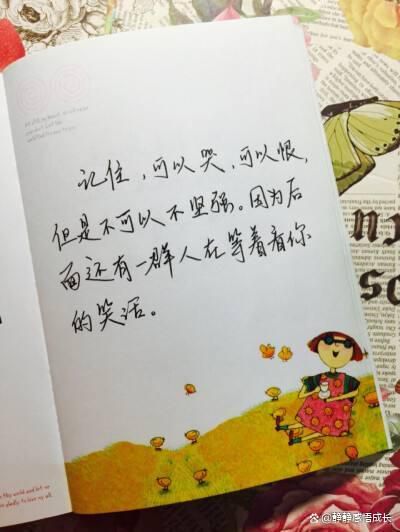 记住，可以哭，可以恨，
但是不可以不坚强。因为后
面还有一群人在等着看你
的笑话。
@静静感悟成长